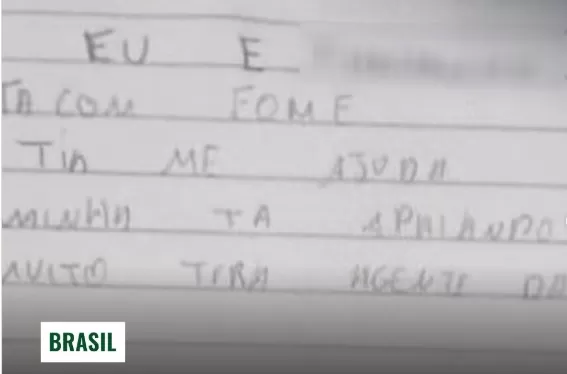 EU E
TA COM FOME
TIA ME AJUDA
MINHA TA APANHANDO
MUITO TIRA AGENTE DA
BRASIL